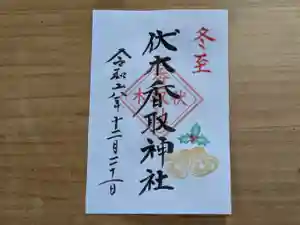 冬至
伏木香取神社
令和六年十二月二十一日